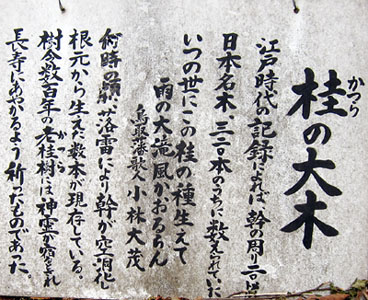 桂の大木
かつら
江戸時代の記録によれば、幹の周り二〇米
日本名木、三一〇本のうちに数えられていた
いつの世にこの桂の種生えて
雨の大滝風かおるらん
鳥取藩歌人 小林大茂
何時の頃か落雷により幹が空洞化
根元から生えた数本が現存している。
樹令数百年の老桂樹は神霊が宿るとされ
かつら
長寿にあやかるよう祈ったものであった。